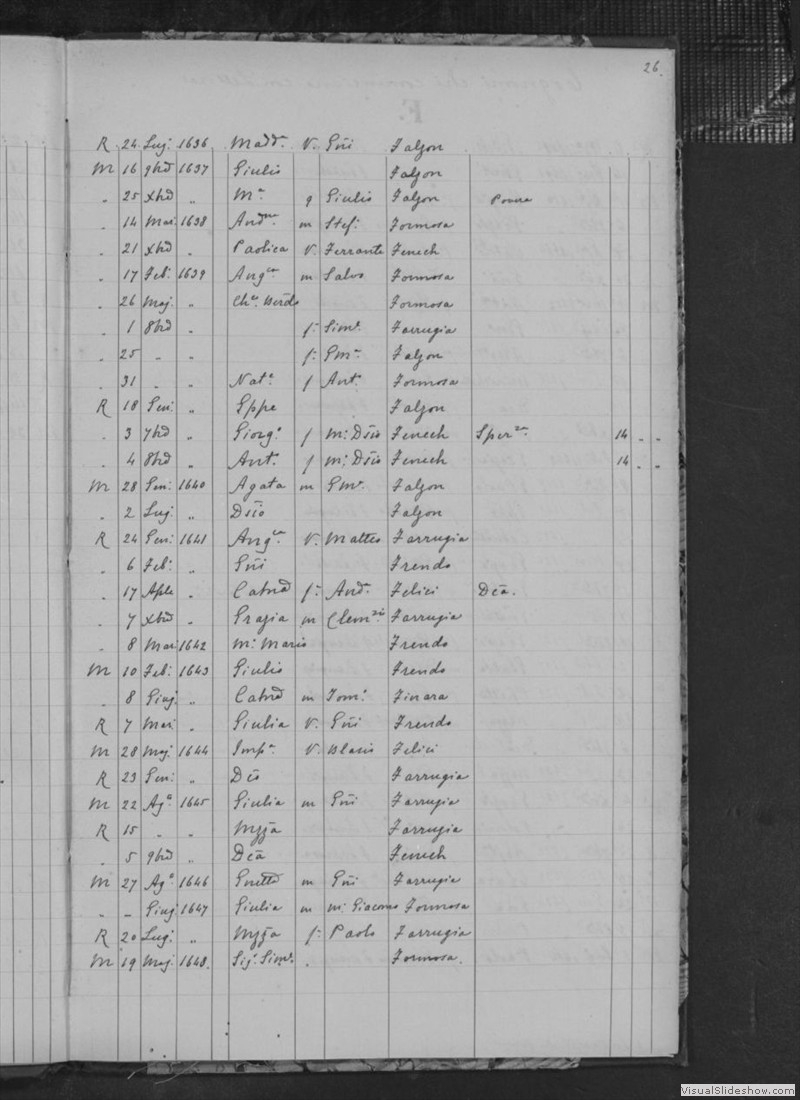 26.
F.
R 24 Lug. 1636 Madd.ª V. Gñi Falzon
M 16 9brẽ 1637 Giulio Falzon
" 25 Xbrẽ " M.ª q Giulio Falzon Povera
" 14 Mar. 1638 And.na m Stef. Formosa
" 21 Xbrẽ " Paolica V. Ferrante Fenech
" 17 Feb. 1639 Ang.ca m Salvo Formosa
" 26 Mag. " Formosa
" 1 8brẽ " f. Sim.e Farrugia
" 25 " " f. Gm.e Falzon
" 31 " " Nat.e f Ant.o Formosa
R 18 Gen. " Gppe Falzon
" 3 7brẽ " Giorg.o f M.o Dño Fenech Sper.za 14 " "
" 4 8brẽ " Ant.o f m.o Dño Fenech 14 " "
M 28 Gen. 1640 Agata m Gm.e Falzon
" 2 Lug. " Dño Falzon
R 24 Gen. 1641 Ang.ca V. Matteo Farrugia
" 6 Feb. " Gñi Frendo
" 17 Aple " Catnã f. And.a Felici Dcã.
" 7 Xbrẽ " Grazia m Clem.te Farrugia
" 8 Mar. 1642 M.o Mario Frendo
M 10 Feb. 1643 Giulio Frendo
" 8 Giug. " Catnã m Tom.o Zinara
R 7 Mar. " Giulia V. Gñi Frendo
M 28 Mag. 1644 Imp.a V. Blasio Felici
R 23 Gen. " Dco Farrugia
M 22 Ag.o 1645 Giulia m Gñi Farrugia
R 15 " " Mgña Farrugia
" 5 9brẽ " Dcã Fenech
M 27 Ag.o 1646 m Gñi Farrugia
" " Giug. 1647 Giulia m m.o Giacomo Formosa
R 20 Lug. " Mgña f. Paolo Farrugia
M 19 Mag. 1648. Sig. Sim.e Formosa.
VisualSlideshow.com